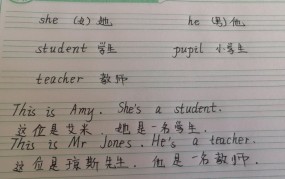 she (女) 她 he (男) 他
student 学生 pupil 小学生
teacher 教师
This is Amy. She's a student.
这位是艾米. 她是一名学生.
This is Mr Jones. He's a teacher.
这位是琼斯先生. 他是一名教师.